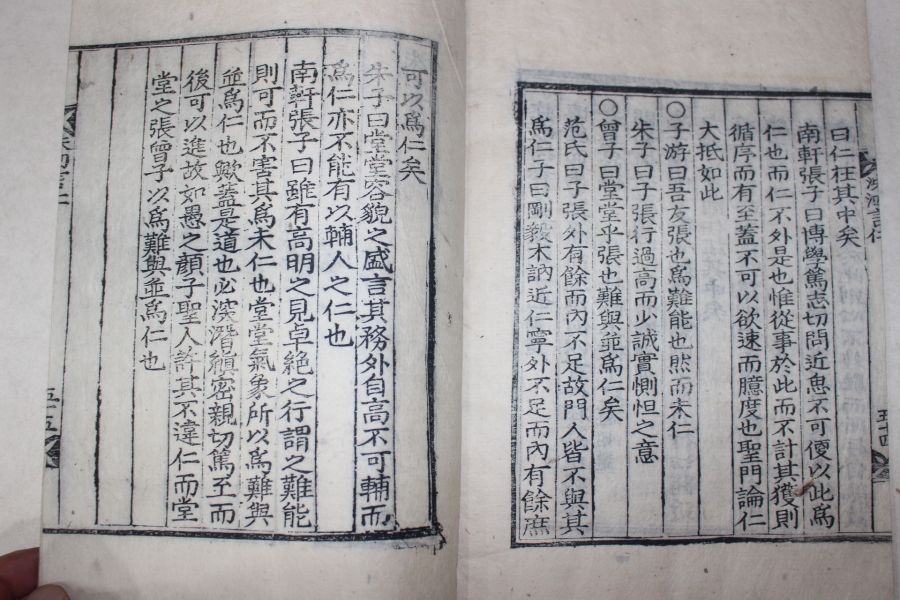 曰仁在其中矣
南軒張子曰博學篤志切問近思不可便以此爲
仁也而仁不外是也惟從事於此而不計其獲則
循序而有至蓋不可以欲速而臆度也聖門論仁
大抵如此
○子游曰吾友張也爲難能也然而未仁
朱子曰子張行過高而少誠實惻怛之意
○曾子曰堂堂乎張也難與並爲仁矣
范氏曰子張外有餘而內不足故門人皆不與其
爲仁子曰剛毅木訥近仁寧外不足而內有餘庶
五十四
可以爲仁矣
朱子曰堂堂容貌之盛言其務外自高不可輔而
爲仁亦不能有以輔人之仁也
南軒張子曰雖有高明之見卓絶之行謂之難能
則可而不害其爲未仁也堂堂氣象所以爲難與
並爲仁也歟蓋是道也必深潛縝密親切篤至而
後可以進故如愚之顏子聖人許其不違仁而堂
堂之張曾子以爲難與並爲仁也
五十五